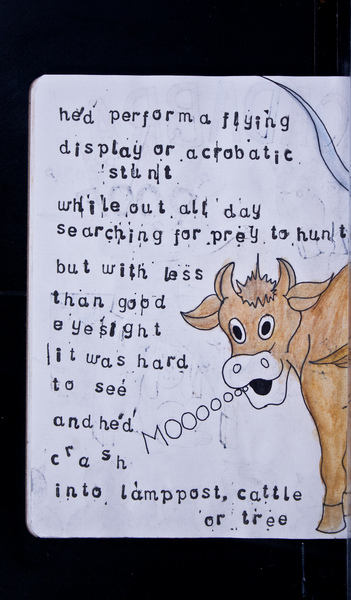 he'd perform a flying
display or acrobatic
stunt
while out all day
searching for prey to hunt
but with less
than good
eyesight
it was hard
to see
and he'd
crash
into lamppost, cattle
or tree
MOOooooooo